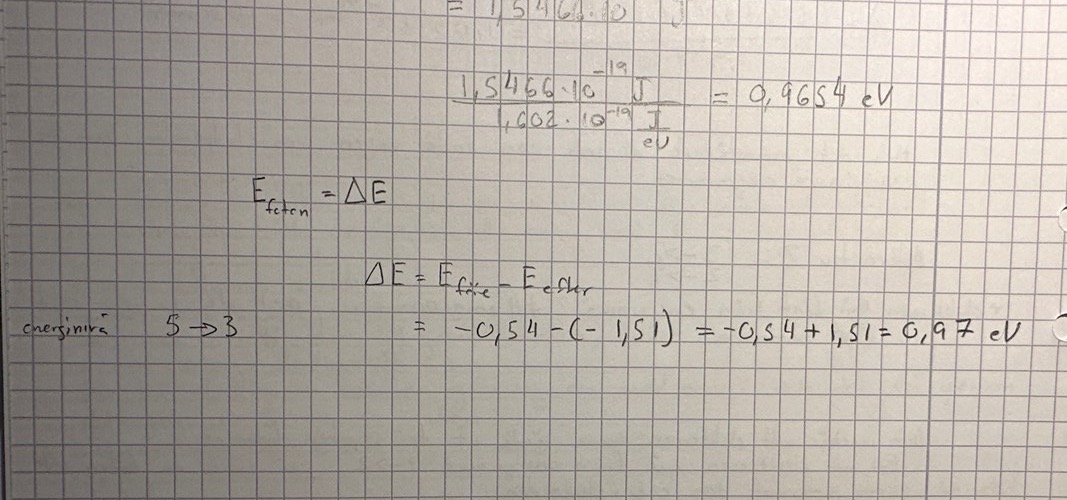 = 1,5466·10 J
1,5466·10⁻¹⁹ J / 1,602·10⁻¹⁹ J/eV = 0,9654 eV
E foton = ΔE
ΔE = E före - E efter
energinivå 5 → 3 = -0,54 - (-1,51) = -0,54 + 1,51 = 0,97 eV